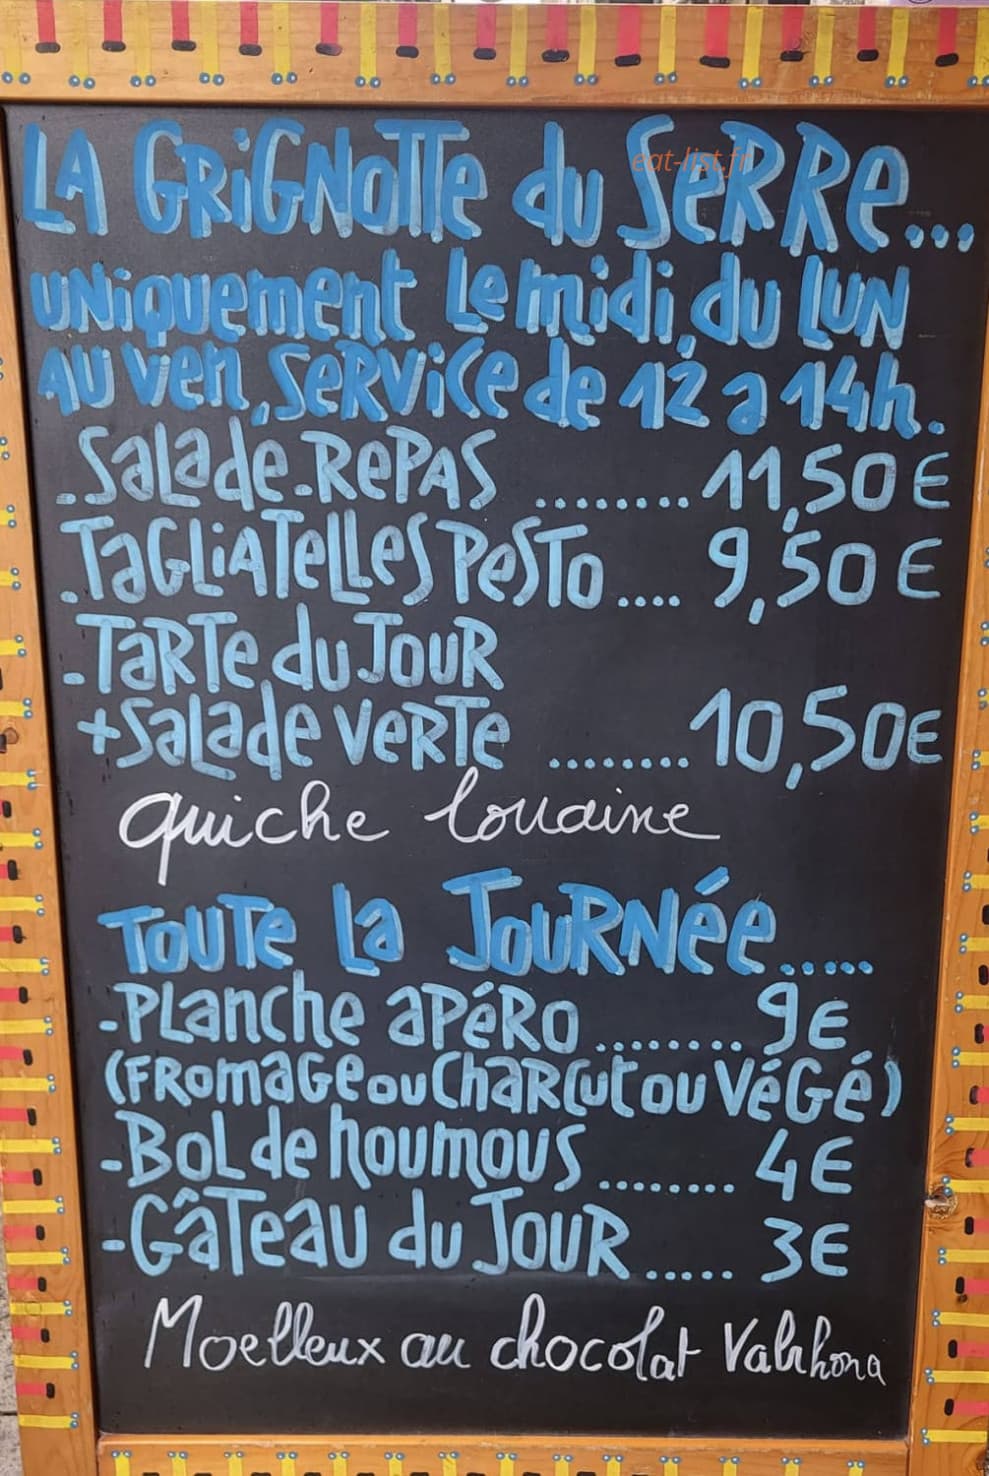 LA GRIGNOTTE du SERRE...
eat-list.fr
UNIQUEMENT Le midi, du LUN
AU VEN, SERVICE de 12 à 14h.
-SALADE-REPAS ........ 11,50€
-TAGLIATELLES PESTO .... 9,50€
-TARTE du JOUR
+SALADE VERTE ........ 10,50€
quiche lorraine
TOUTE LA JOURNÉE.....
-PLANCHE APÉRO ........ 9€
(FROMAGE OU CHARCUT OU VÉGÉ)
-BOL de houmous ........ 4€
-GÂTEAU du JOUR ..... 3€
Moelleux au chocolat Valrhona